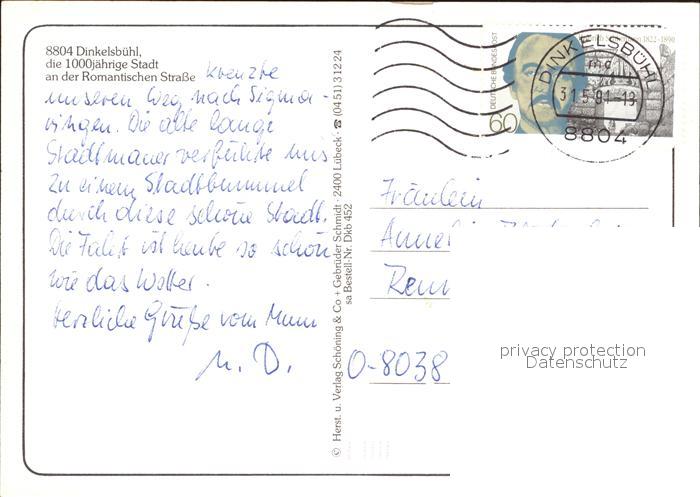 8804 Dinkelsbühl,
die 1000jährige Stadt
an der Romantischen Straße kreuzte
unseren Weg nach Sigma-
ringen. Die alte lange
Stadtmauer verführte uns
zu einem Stadtbummel
durch diese schöne Stadt.
Die Fahrt ist heute so schön
wie das Wetter.
Herzliche Grüße vom Mum
u. D.
© Herst. u. Verlag Schöning & Co + Gebrüder Schmidt · 2400 Lübeck ☎ (0451) 31224
sa Bestell-Nr. Dkb 452
DEUTSCHE BUNDESPOST
60
1822-1890
DINKELSBÜHL
mg
31.5.91-19
8804
Fräulein
O-8038
privacy protection
Datenschutz